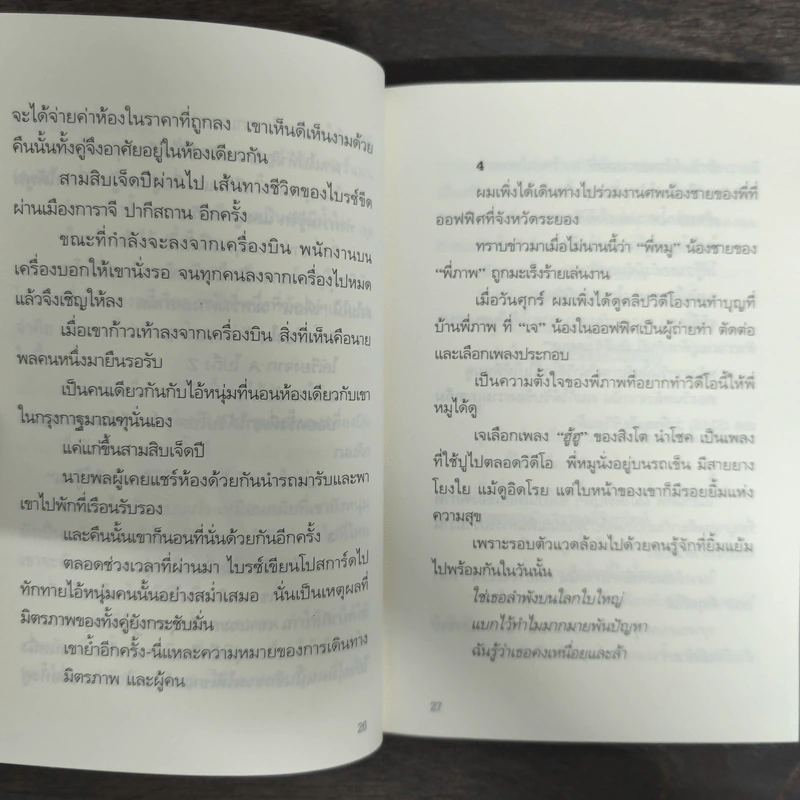 จะได้จ่ายค่าห้องในราคาที่ถูกลง เขาเห็นดีเห็นงามด้วย
คืนนั้นทั้งคู่จึงอาศัยอยู่ในห้องเดียวกัน
สามสิบเจ็ดปีผ่านไป เส้นทางชีวิตของไบรซ์ขีด
ผ่านเมืองการาจี ปากีสถาน อีกครั้ง
ขณะที่กำลังจะลงจากเครื่องบิน พนักงานบน
เครื่องบอกให้เขานั่งรอ จนทุกคนลงจากเครื่องไปหมด
แล้วจึงเชิญให้ลง
เมื่อเขาก้าวเท้าลงจากเครื่องบิน สิ่งที่เห็นคือนาย
พลคนหนึ่งมายืนรอรับ
เป็นคนเดียวกันกับไอ้หนุ่มที่นอนห้องเดียวกับเขา
ในกรุงกาฐมาณฑุนั่นเอง
แค่แก่ขึ้นสามสิบเจ็ดปี
นายพลผู้เคยแชร์ห้องด้วยกันนำรถมารับและพา
เขาไปพักที่เรือนรับรอง
และคืนนั้นเขาก็นอนที่นั่นด้วยกันอีกครั้ง
ตลอดช่วงเวลาที่ผ่านมา ไบรซ์เขียนโปสการ์ดไป
ทักทายไอ้หนุ่มคนนั้นอย่างสม่ำเสมอ นั่นเป็นเหตุผลที่
มิตรภาพของทั้งคู่ยังกระชับมั่น
เขาย้ำอีกครั้ง-นี่แหละความหมายของการเดินทาง
มิตรภาพ และผู้คน
26
4
ผมเพิ่งได้เดินทางไปร่วมงานศพน้องชายของพี่ที่
ออฟฟิศที่จังหวัดระยอง
ทราบข่าวมาเมื่อไม่นานนี้ว่า “พี่หมู” น้องชายของ
“พี่ภาพ” ถูกมะเร็งร้ายเล่นงาน
เมื่อวันศุกร์ ผมเพิ่งได้ดูคลิปวิดีโองานทำบุญที่
บ้านพี่ภาพ ที่ “เจ” น้องในออฟฟิศเป็นผู้ถ่ายทำ ตัดต่อ
และเลือกเพลงประกอบ
เป็นความตั้งใจของพี่ภาพที่อยากทำวิดีโอนี้ให้พี่
หมูได้ดู
เจเลือกเพลง “อู้ฮู” ของสิงโต นำโชค เป็นเพลง
ที่ใช้ปูไปตลอดวิดีโอ พี่หมูนั่งอยู่บนรถเข็น มีสายยาง
โยงใย แม้ดูอิดโรย แต่ใบหน้าของเขาก็มีรอยยิ้มแห่ง
ความสุข
เพราะรอบตัวแวดล้อมไปด้วยคนรู้จักที่ยิ้มแย้ม
ไปพร้อมกันในวันนั้น
ใช่เธอลำพังบนโลกใบใหญ่
แบกไว้ทำไมมากมายพันปัญหา
ฉันรู้ว่าเธอคงเหนื่อยและล้า
27